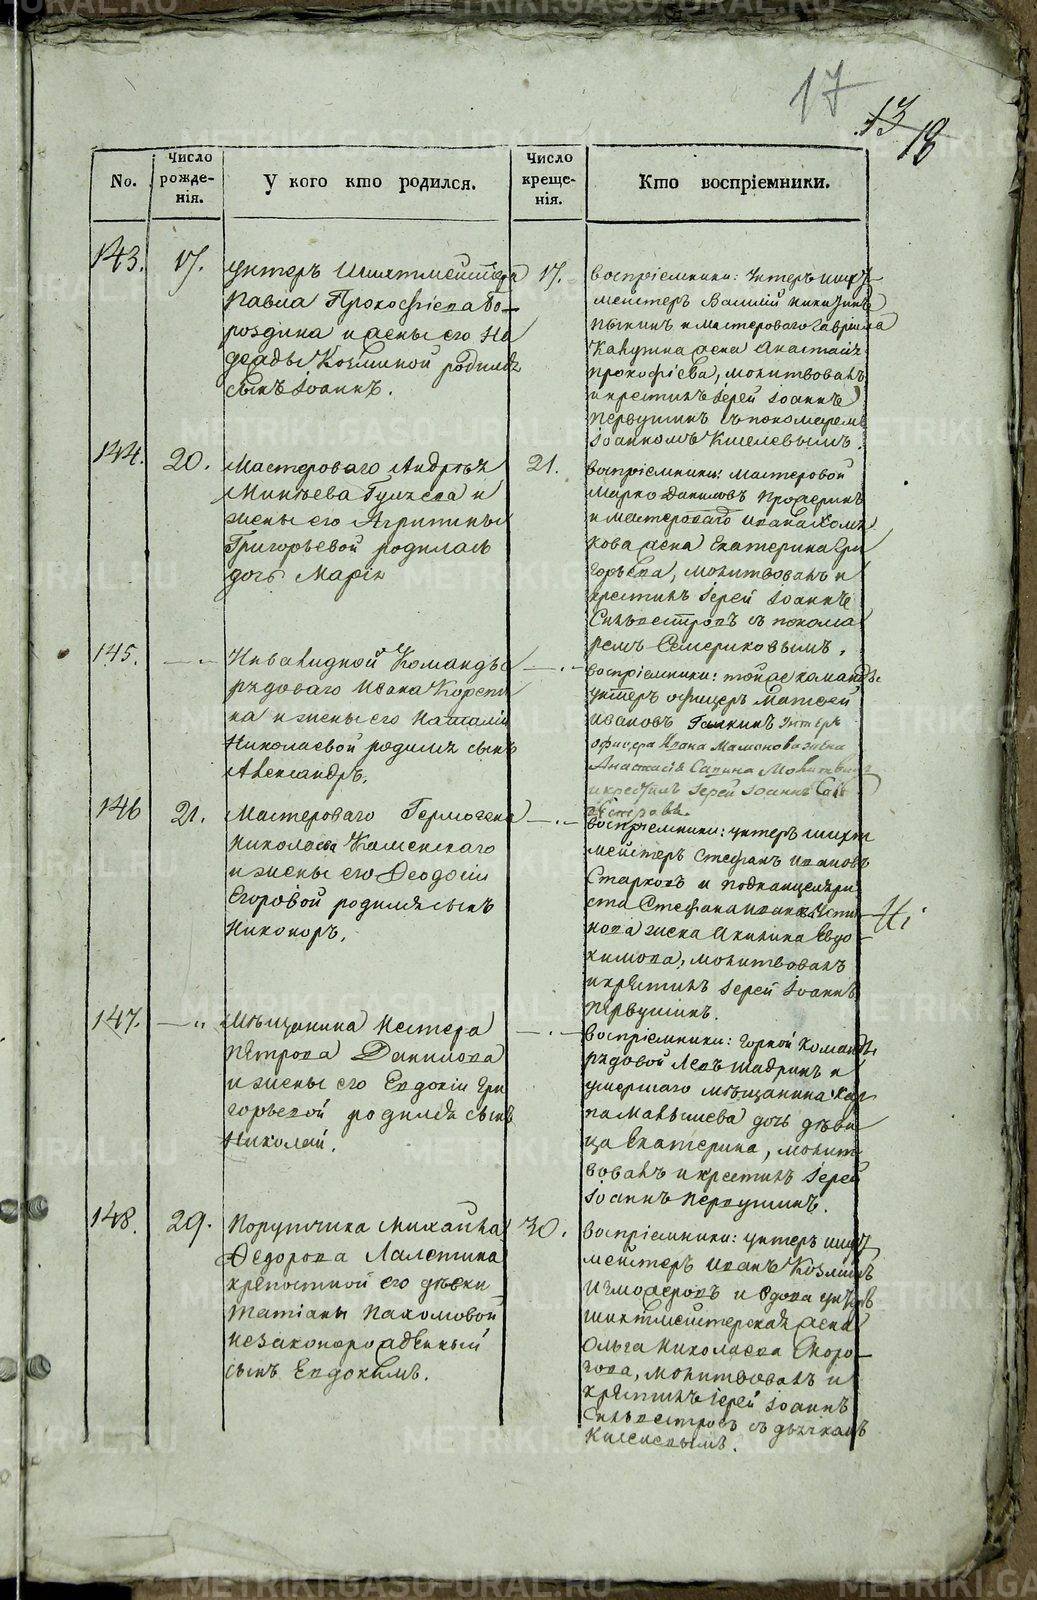 17
13
18
No.
Число рожде-
нія.
У кого кто родился.
Число креще-
нія.
Кто воспріемники.
143.
17.
унтеръ Шихтмейстера
Павла Прокофіева Бо-
роздина и жены его На
дежды Козминой родился
сынъ Іоаннъ.
17.
воспріемники: Унтеръ шихт
мейстеръ Василій
и мастероваго Гавріила
жена Анастасія
Прокофіева, молитвовалъ
и крестилъ Іерей Іоаннъ
Первушинъ съ пономаремъ
Іоанномъ Киселевымъ.
144.
20.
Мастероваго Андрея
Минѣева Гуляева и
жены его Агрипины
Григорьевой родилась
дочь Марія
21.
воспріемники: мастеровой
Марко Даниловъ
и мастероваго Ивана
жена Екатерина Гри
горьева, молитвовалъ и
крестилъ Іерей Іоаннъ
Сильвестровъ съ понома
ремъ Семериковымъ.
145.
— „
Инвалидной Команды
рядоваго Ивана
и жены его Наталіи
Николаевой родился сынъ
Александръ.
— „ —
воспріемники: тойже команды
унтеръ офицеръ Матвей
Ивановъ Галкинъ Унтеръ
офицера Ивана Мамонова жена
Анастасія Савина Молитвовалъ
и крестилъ Іерей Іоаннъ Сил
вестровъ.
146
21.
Мастероваго Гермогена
Николаева Каменскаго
и жены его Ѳеодосіи
Егоровой родился сынъ
Никоноръ.
— „ —
воспріемники: унтеръ шихт
мейстеръ Стефанъ Ивановъ
Старковъ и подканцеляри
ста Стефана Иванова Усти
нова жена Акилина Евдо
кимова, молитвовалъ
и крестилъ Іерей Іоаннъ
Первушинъ.
147.
— „
Мѣщанина Нестера
Петрова Данилова
и жены его Евдокіи Гри
горьевой родился сынъ
Николай.
— „ —
воспріемники: горной команды
рядовой Левъ Шадринъ и
умершаго мѣщанина Кар
па Малышева дочь дѣви
ца Екатерина, молит
вовалъ и крестилъ Іерей
Іоаннъ Первушинъ.
148.
29.
Порутчика Михайла
Ѳедорова Лалетина
крепостной его дѣвки
Татіаны Пахомовой
незаконорожденный
сынъ Евдокимъ.
30.
воспріемники: унтеръ шихт
мейстеръ Иванъ Козминъ
Изможеровъ и вдова унтеръ
шихтмейстерская жена
Ольга Николаева
молитвовалъ и
крестилъ іерей Іоаннъ
Сильвестровъ съ дьячкомъ
Киселевымъ.